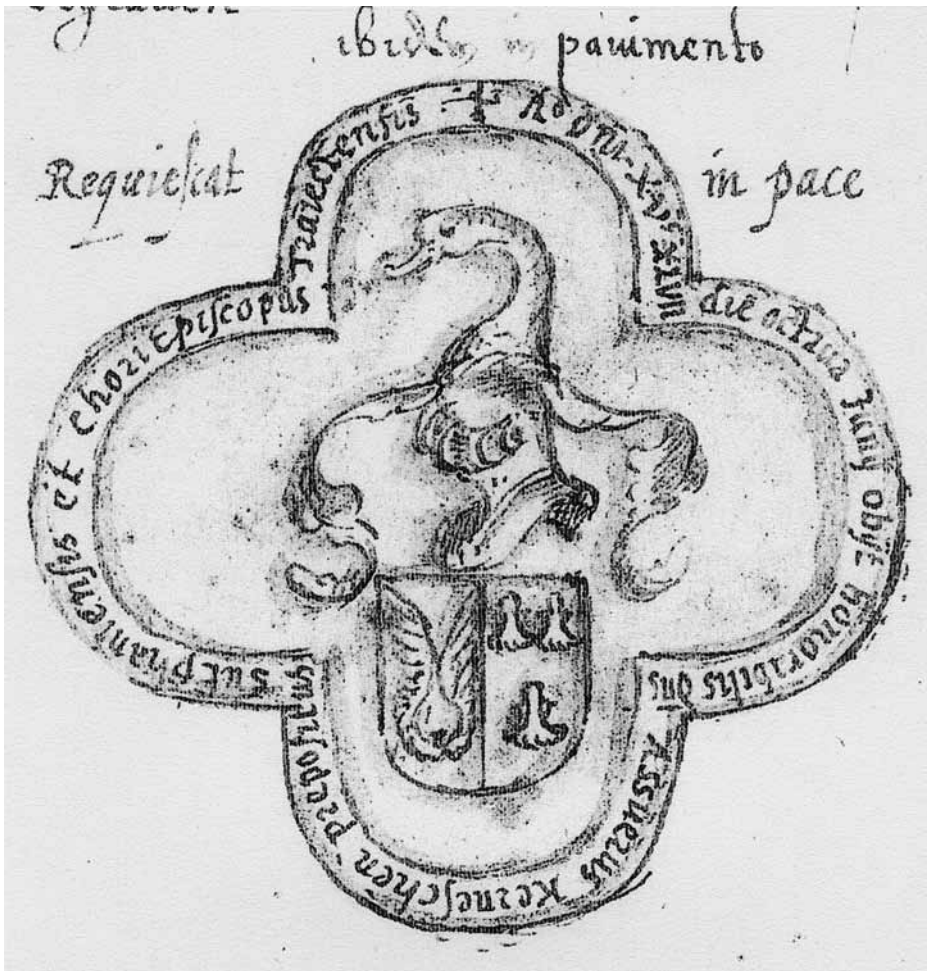 ibidem in pavimento
Requiescat
in pace
+ A° Dni XVᶜ XLVII die octava Junij obijt honorabilis dns Assuerus Kerneschen prepositus Sutphaniensis et ChoriEpiscopus Traiectensis